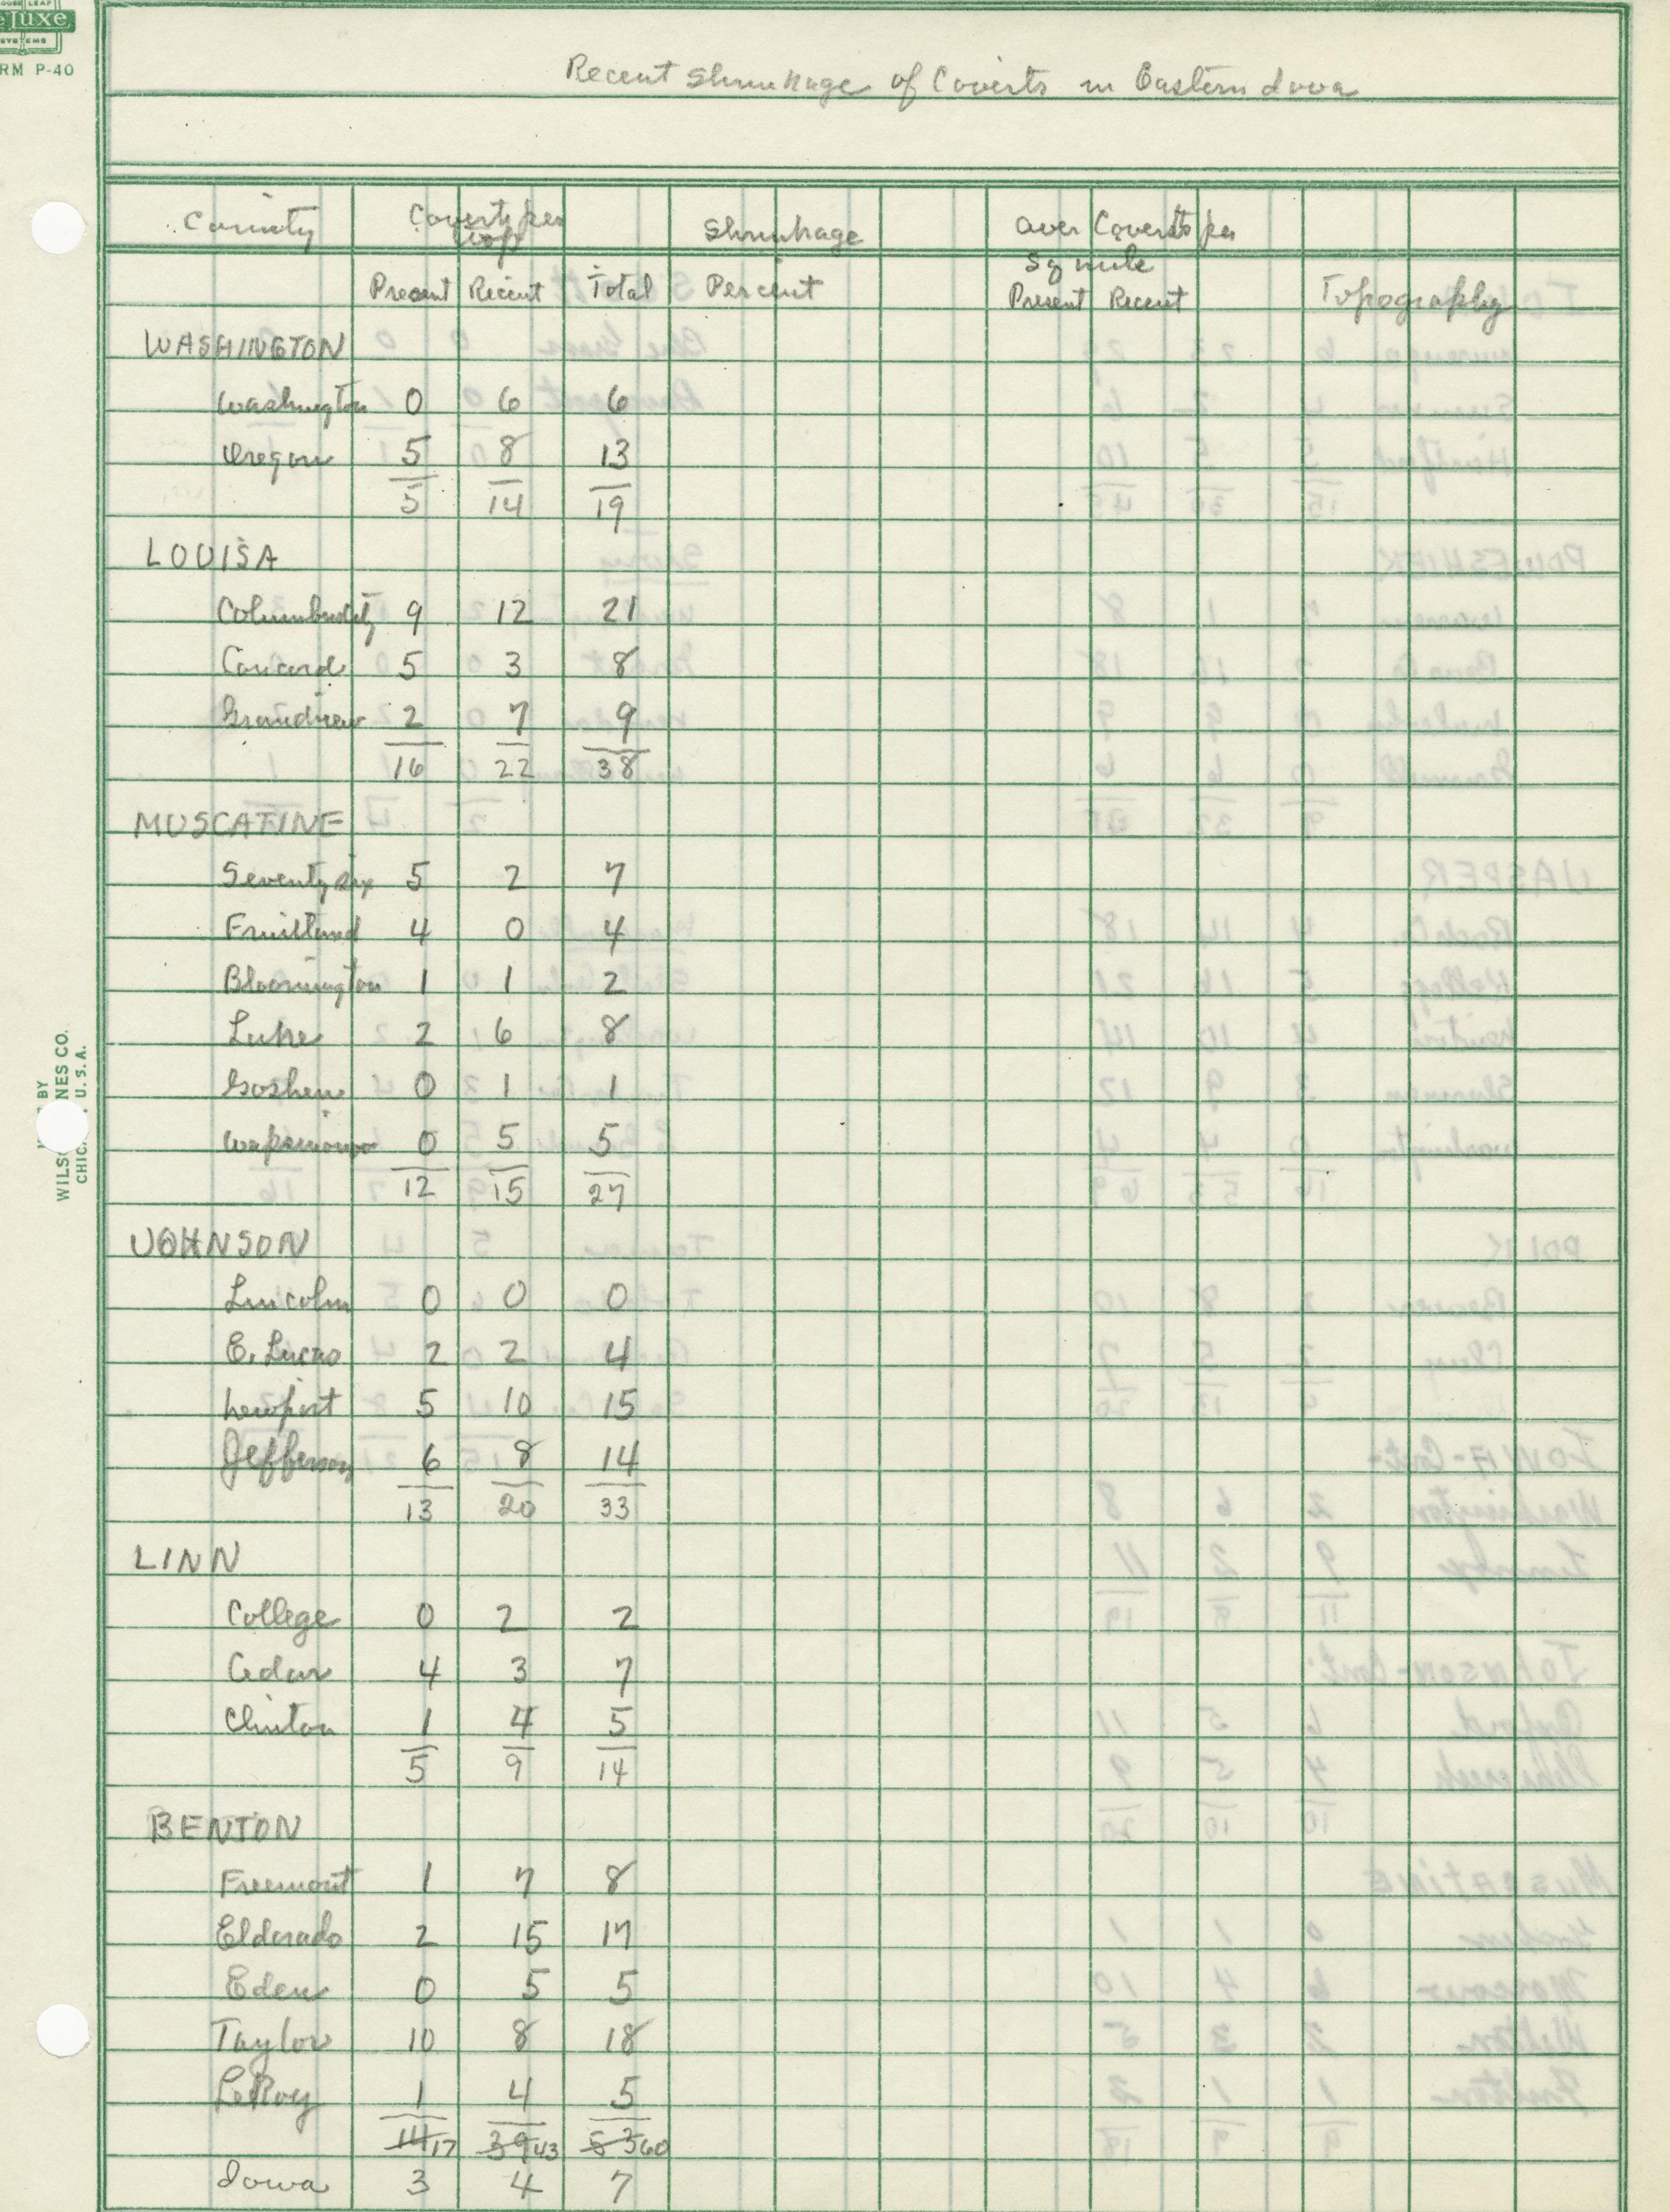 LOOSE LEAF
eLuxe
SYSTEMS
RM P-40
Recent Shrinkage of Coverts in Eastern Iowa
County Coverts per Shrinkage Aver Coverts per
twp
Sq mile
Present Recent Total Percent Present Recent Topography
WASHINGTON
Washington 0 6 6
Oregon 5 8 13
5 14 19
LOUISA
Columbus City 9 12 21
Concord 5 3 8
Grandview 2 7 9
16 22 38
MUSCATINE
Seventy six 5 2 7
Fruitland 4 0 4
Bloomington 1 1 2
Lake 2 6 8
Goshen 0 1 1
Wapsinonoc 0 5 5
12 15 27
JOHNSON
Lincoln 0 0 0
E. Lucas 2 2 4
Newport 5 10 15
Jefferson 6 8 14
13 20 33
LINN
College 0 2 2
Cedar 4 3 7
Clinton 1 4 5
5 9 14
BENTON
Freemont 1 7 8
Eldorado 2 15 17
Eden 0 5 5
Taylor 10 8 18
LeRoy 1 4 5
14 17 39 43 53 60
Iowa 3 4 7
BY
WILSO NES CO.
CHIC , U.S.A.